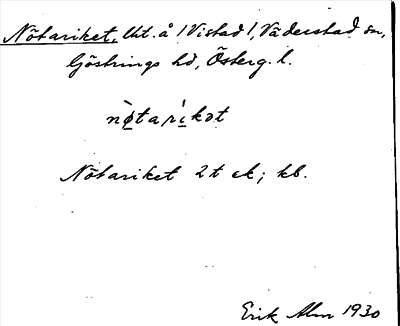 Nötariket, lht. å /Vistad/, Väderstad sn,
Göstrings hd, Österg. l.
nø̀tarίkət
Nötariket 2t ek; kb.
Erik Alm 1930